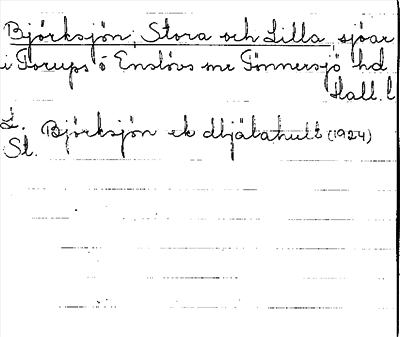 Björksjön, Stora och Lilla, sjöar
i Torups o Enslövs snr Tönnersjö hd
Hall. l
L.
St. Björksjön ek (1924)